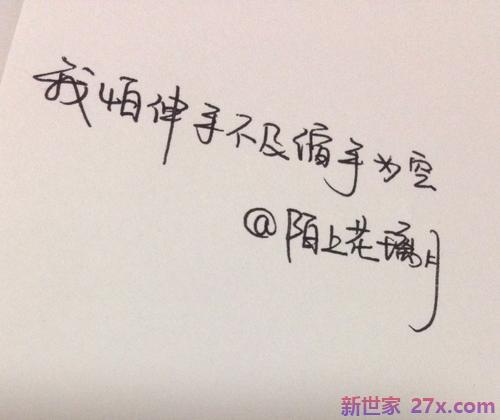 我怕伸手不及缩手为空
@陌上花璃月
新世家 27x.com